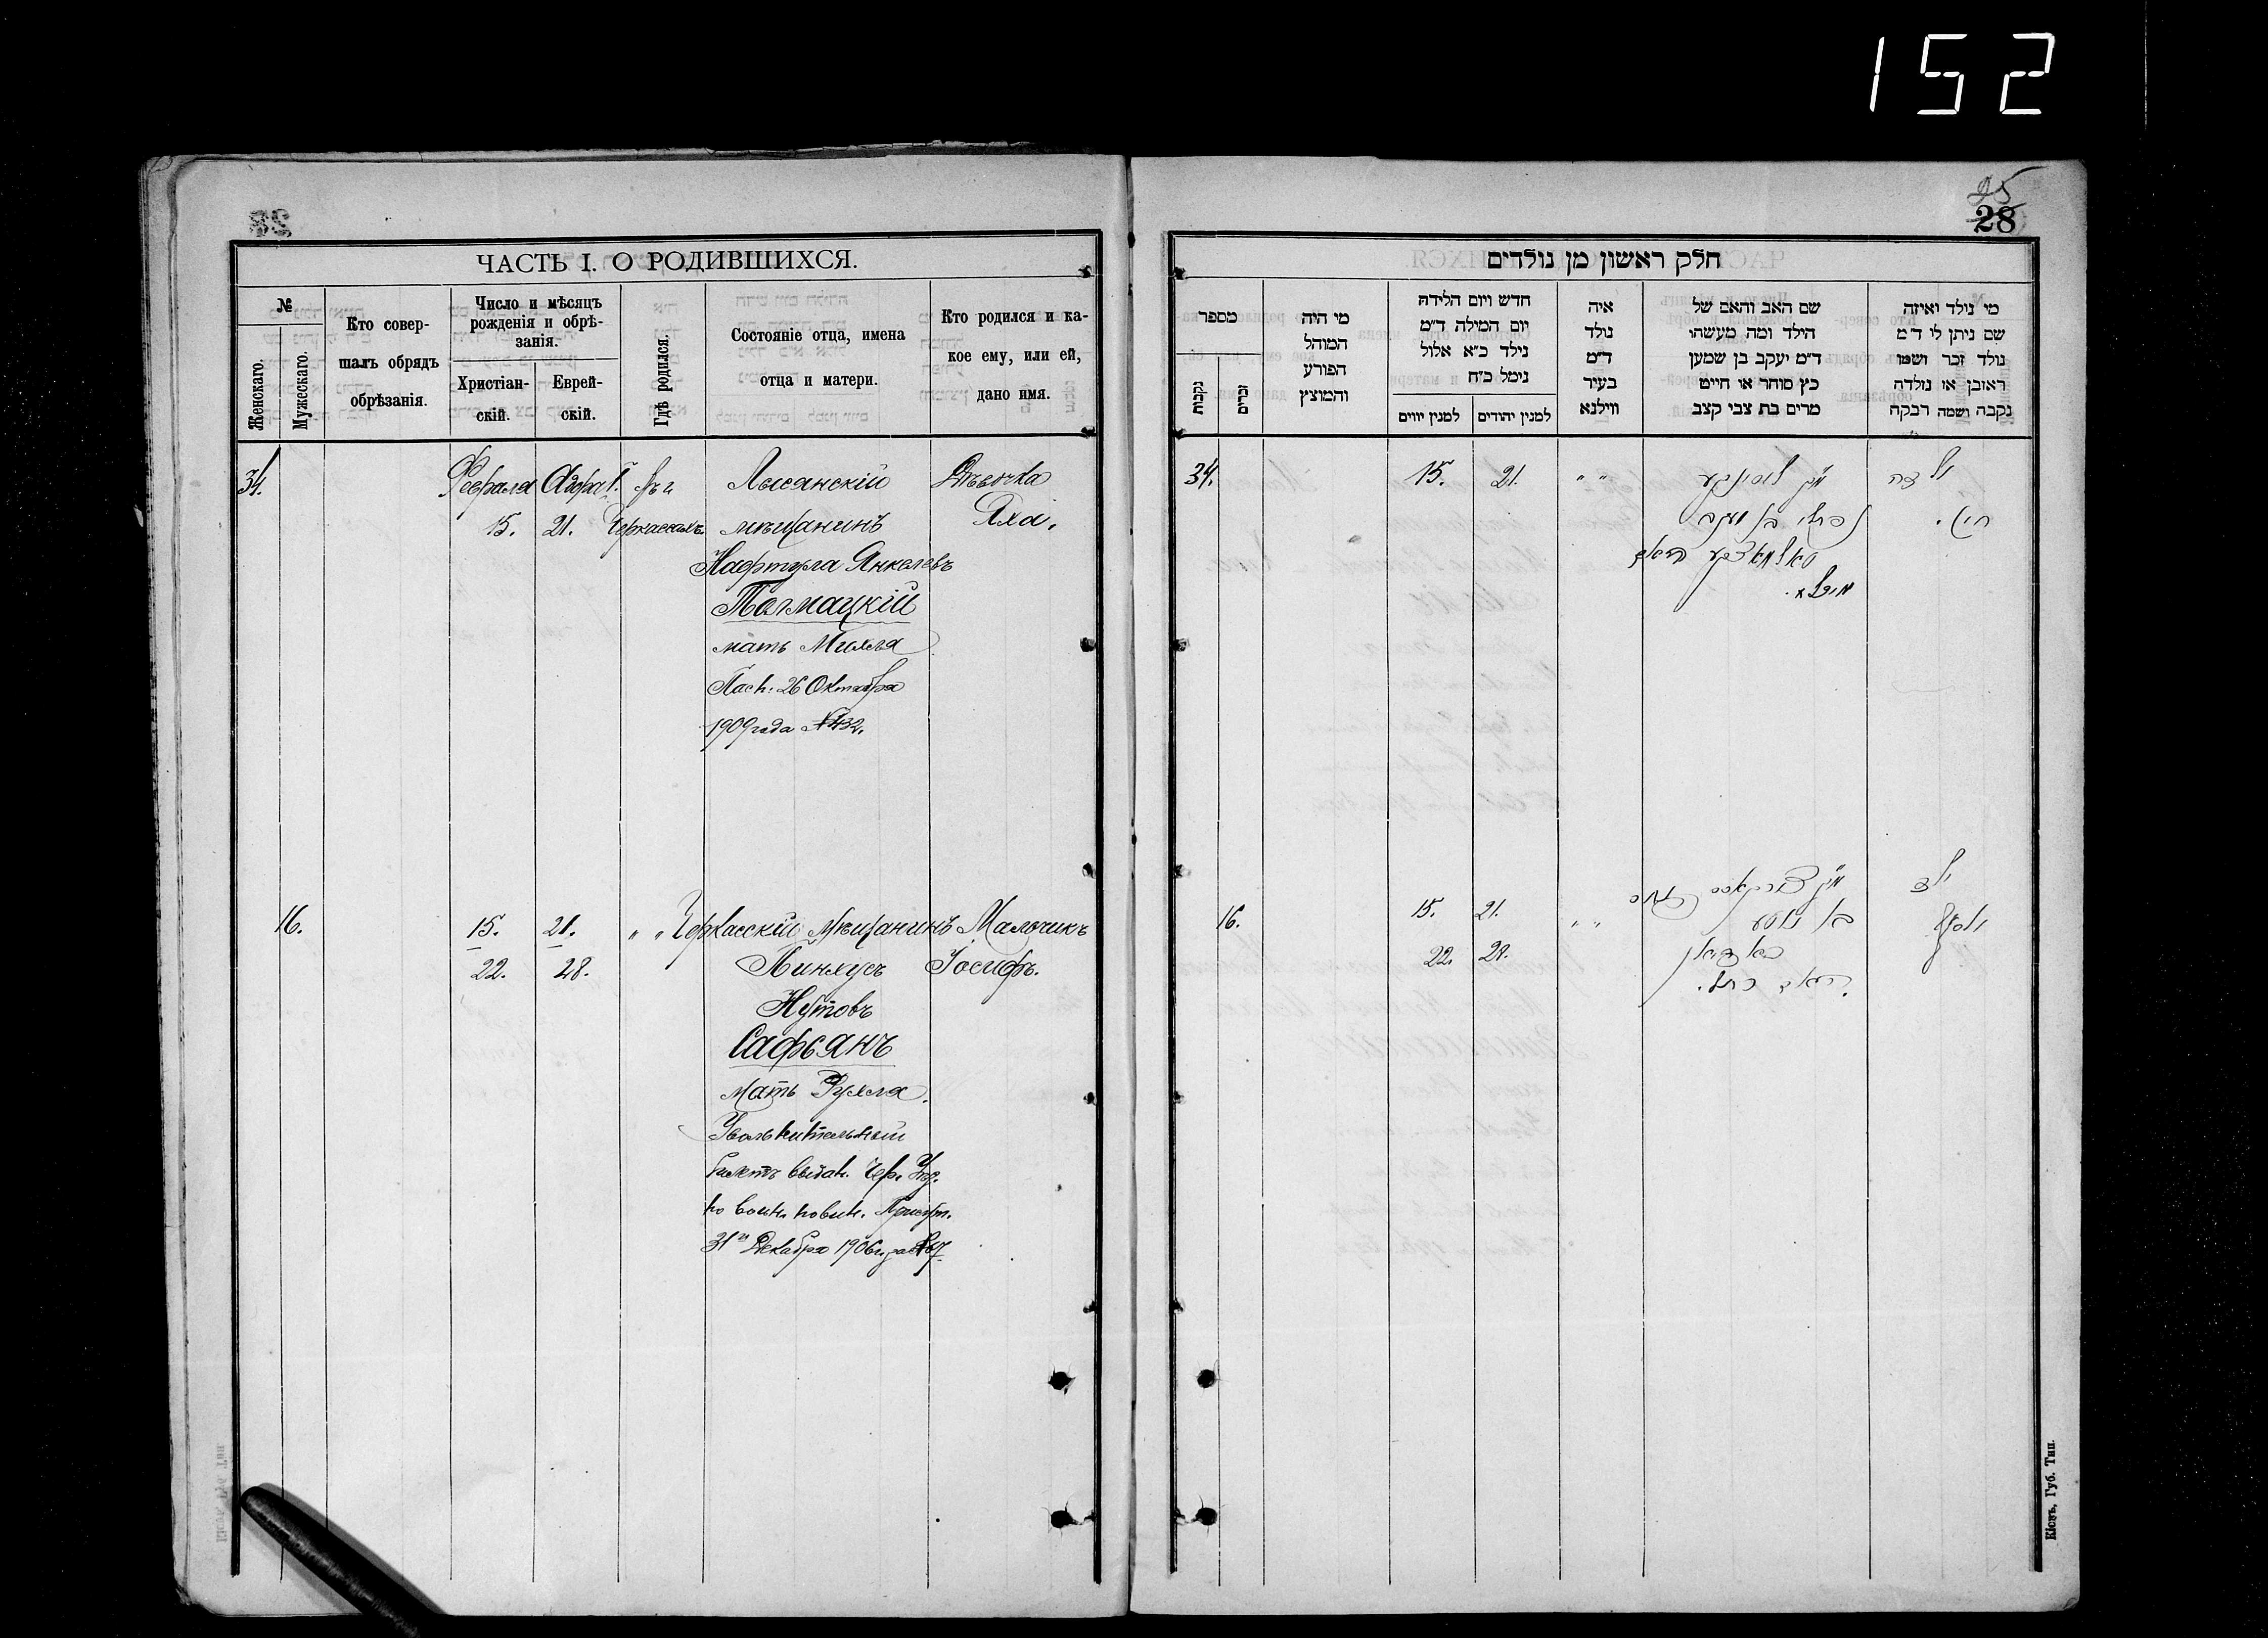 152
25
28
ЧАСТЬ I. О РОДИВШИХСЯ.
№
Женскаго.
Мужескаго.
Кто совер-
шалъ обрядъ
обрѣзанія.
Число и мѣсяцъ
рожденія и обрѣ-
занія.
Христіан-
скій.
Еврей-
скій.
Гдѣ родился.
Состояніе отца, имена
отца и матери.
Кто родился и ка-
кое ему, или ей,
дано имя.
34.
Февраля
15.
21.
Черкассахъ
Лысянскій
мѣщанинъ
Нафтула Янкелевъ
Толмацкій
мать Михля
Пасп. 26 Октября
1909 года №432.
Дѣвочка
Хая.
16.
15.
22.
21.
28.
" "
Черкасскій мѣщанинъ
Пинхусъ
Нутовъ
Сафьянъ
мать Рухля.
билетъ выдан. Чер. Уѣз.
по воин. повин. Присут.
31го Декабря 1906 г. за №
Мальчикъ
Іосифъ.
חלק ראשון מן נולדים
מספר
נקבות
זכרים
מי היה
המוהל
הפורע
והמוצץ
חדש ויום הלידה
יום המילת ד״מ
נילד כ״א אלול
נימל כ״ח
למנין יווים
למנין יהודים
איה
נולד
ד״מ
בעיר
ווילנא
שם האב והאם של
הילד ומה מעשהו
ד״מ יעקב בן שמען
כץ סוחר או חייט
מרים בת צבי קצב
מי נולד ואיזה
שם ניתן לו ד״מ
נולד זכר ושמו
ראובן או נולדה
נקבה ושמה רבקה
34.
15.
21.
" "
נפתלי בן יעקב
ילדה
חי׳.
16.
15.
21.
22.
28.
" "
בן נוטע
ילד
יוסף
Кіевъ, Губ. Тип.